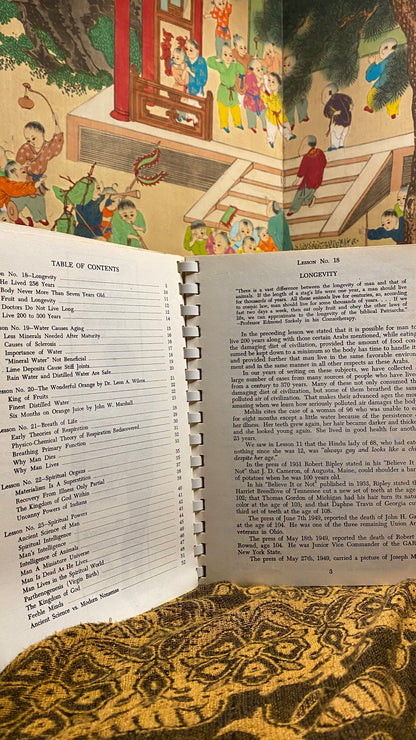 TABLE OF CONTENTS
on No. 18—Longevity
He Lived 256 Years
Body Never More Than Seven Years Old
Fruit and Longevity
Doctors Do Not Live Long
Live 200 to 300 Years
on No. 19—Water Causes Aging
Less Minerals Needed After Maturity
Causes of Sclerosis
Importance of Water
"Mineral Water" Not Beneficial
Lime Deposits Cause Stiff Joints
Rain Water and Distilled Water Are Safe
Lesson No. 20—The Wonderful Orange by Dr. Leon A. Wilcox
King of Fruits
Finest Distilled Water
Six Months on Orange Juice by John W. Marshall
Lesson No. 21—Breath of Life
Early Theories of Respiration
Physico-Chemical Theory of Respiration Rediscovered
Breathing Primary Function
Why Man Dies
Why Man Lives
Lesson No. 22—Spiritual Organs
Materialism Is a Superstition
Recovery From Illness Only Partial
The Kingdom of God Within
Uncanny Powers of Indians
Lesson No. 23—Spiritual Powers
Ancient Science of Man
Spiritual Intelligence
Man's Intelligence
Intelligence of Animals
Man A Miniature Universe
Man Is Dead As He Lives
Man Lives in the Spiritual World
Parthenogenesis (Virgin Birth)
The Kingdom of God
Feeble Minds
Ancient Science vs. Modern Nonsense
LESSON No. 18
LONGEVITY
"There is a vast difference between the longevity of man and that of
animals. If the length of a stag's life were one year, a man should live
for thousands of years. All these animals live for centuries, so, according
to conquer law, man should live for some thousands of years. . . . If we
last two days week, then eat only fruit and obey the other laws of
life, we can approximate to the longevity of the biblical Patriarchs."
—Professor Edmond Szekely in his Cosmotherapy.
In the preceding lesson we stated that it is possible for man
live 200 years along with those certain Arabs mentioned, while eating
the damaging diet of civilization, provided the amount of food con-
sumed be kept down to a minimum so the body has time to handle it
and provided further that man live in the same favorable environ
ment and in the same manner in all other respects as these Arabs.
In our years of writing on these subjects, we have collected
large number of cases from many sources of people who have lived
from a century to 370 years. Many of these not only consumed
damaging diet of civilization, but some of them breathed the same
polluted air of civilization. That makes their advanced ages the more
amazing when we learn how seriously polluted air damages the bod
Mehlis cites the case of a woman of 98 who was unable to
for eight months except a little water because of the persistence
her illness. Her teeth grew again, her hair became darker and thicker
and she looked young again. She lived in good health for another
23 years.
We saw in Lesson 11 that the Hindu lady of 68, who had eaten
nothing since she was 12, was "always gay and looks like a child
despite her age."
In the press in 1931 Robert Ripley stated in his "Believe It or
Not" that J. D. Cameron, of Augusta, Maine, could shoulder a barrel
of potatoes when he was 100 years old.
In his "Believe It or Not" published in 1933, Ripley stated that
Harriet Breedlove of Tennessee cut a new set of teeth at the age of
102; that Thomas Gordon of Michigan had his hair turn its natural
color at the age of 95; and that Daphne Travis of Georgia cut
third set of teeth at the age of 108.
The press of June 7th 1949, reported the death of John H. Ga
at the age of 104. He was one of the three remaining Union Army
veterans in Ohio.
The press of May 18th 1949, reported the death of Robert
Rownd, age 104. He was Junior Vice Commander of the GAR
New York State.
The press of May 27th, 1949, carried a picture of Joseph M.
3